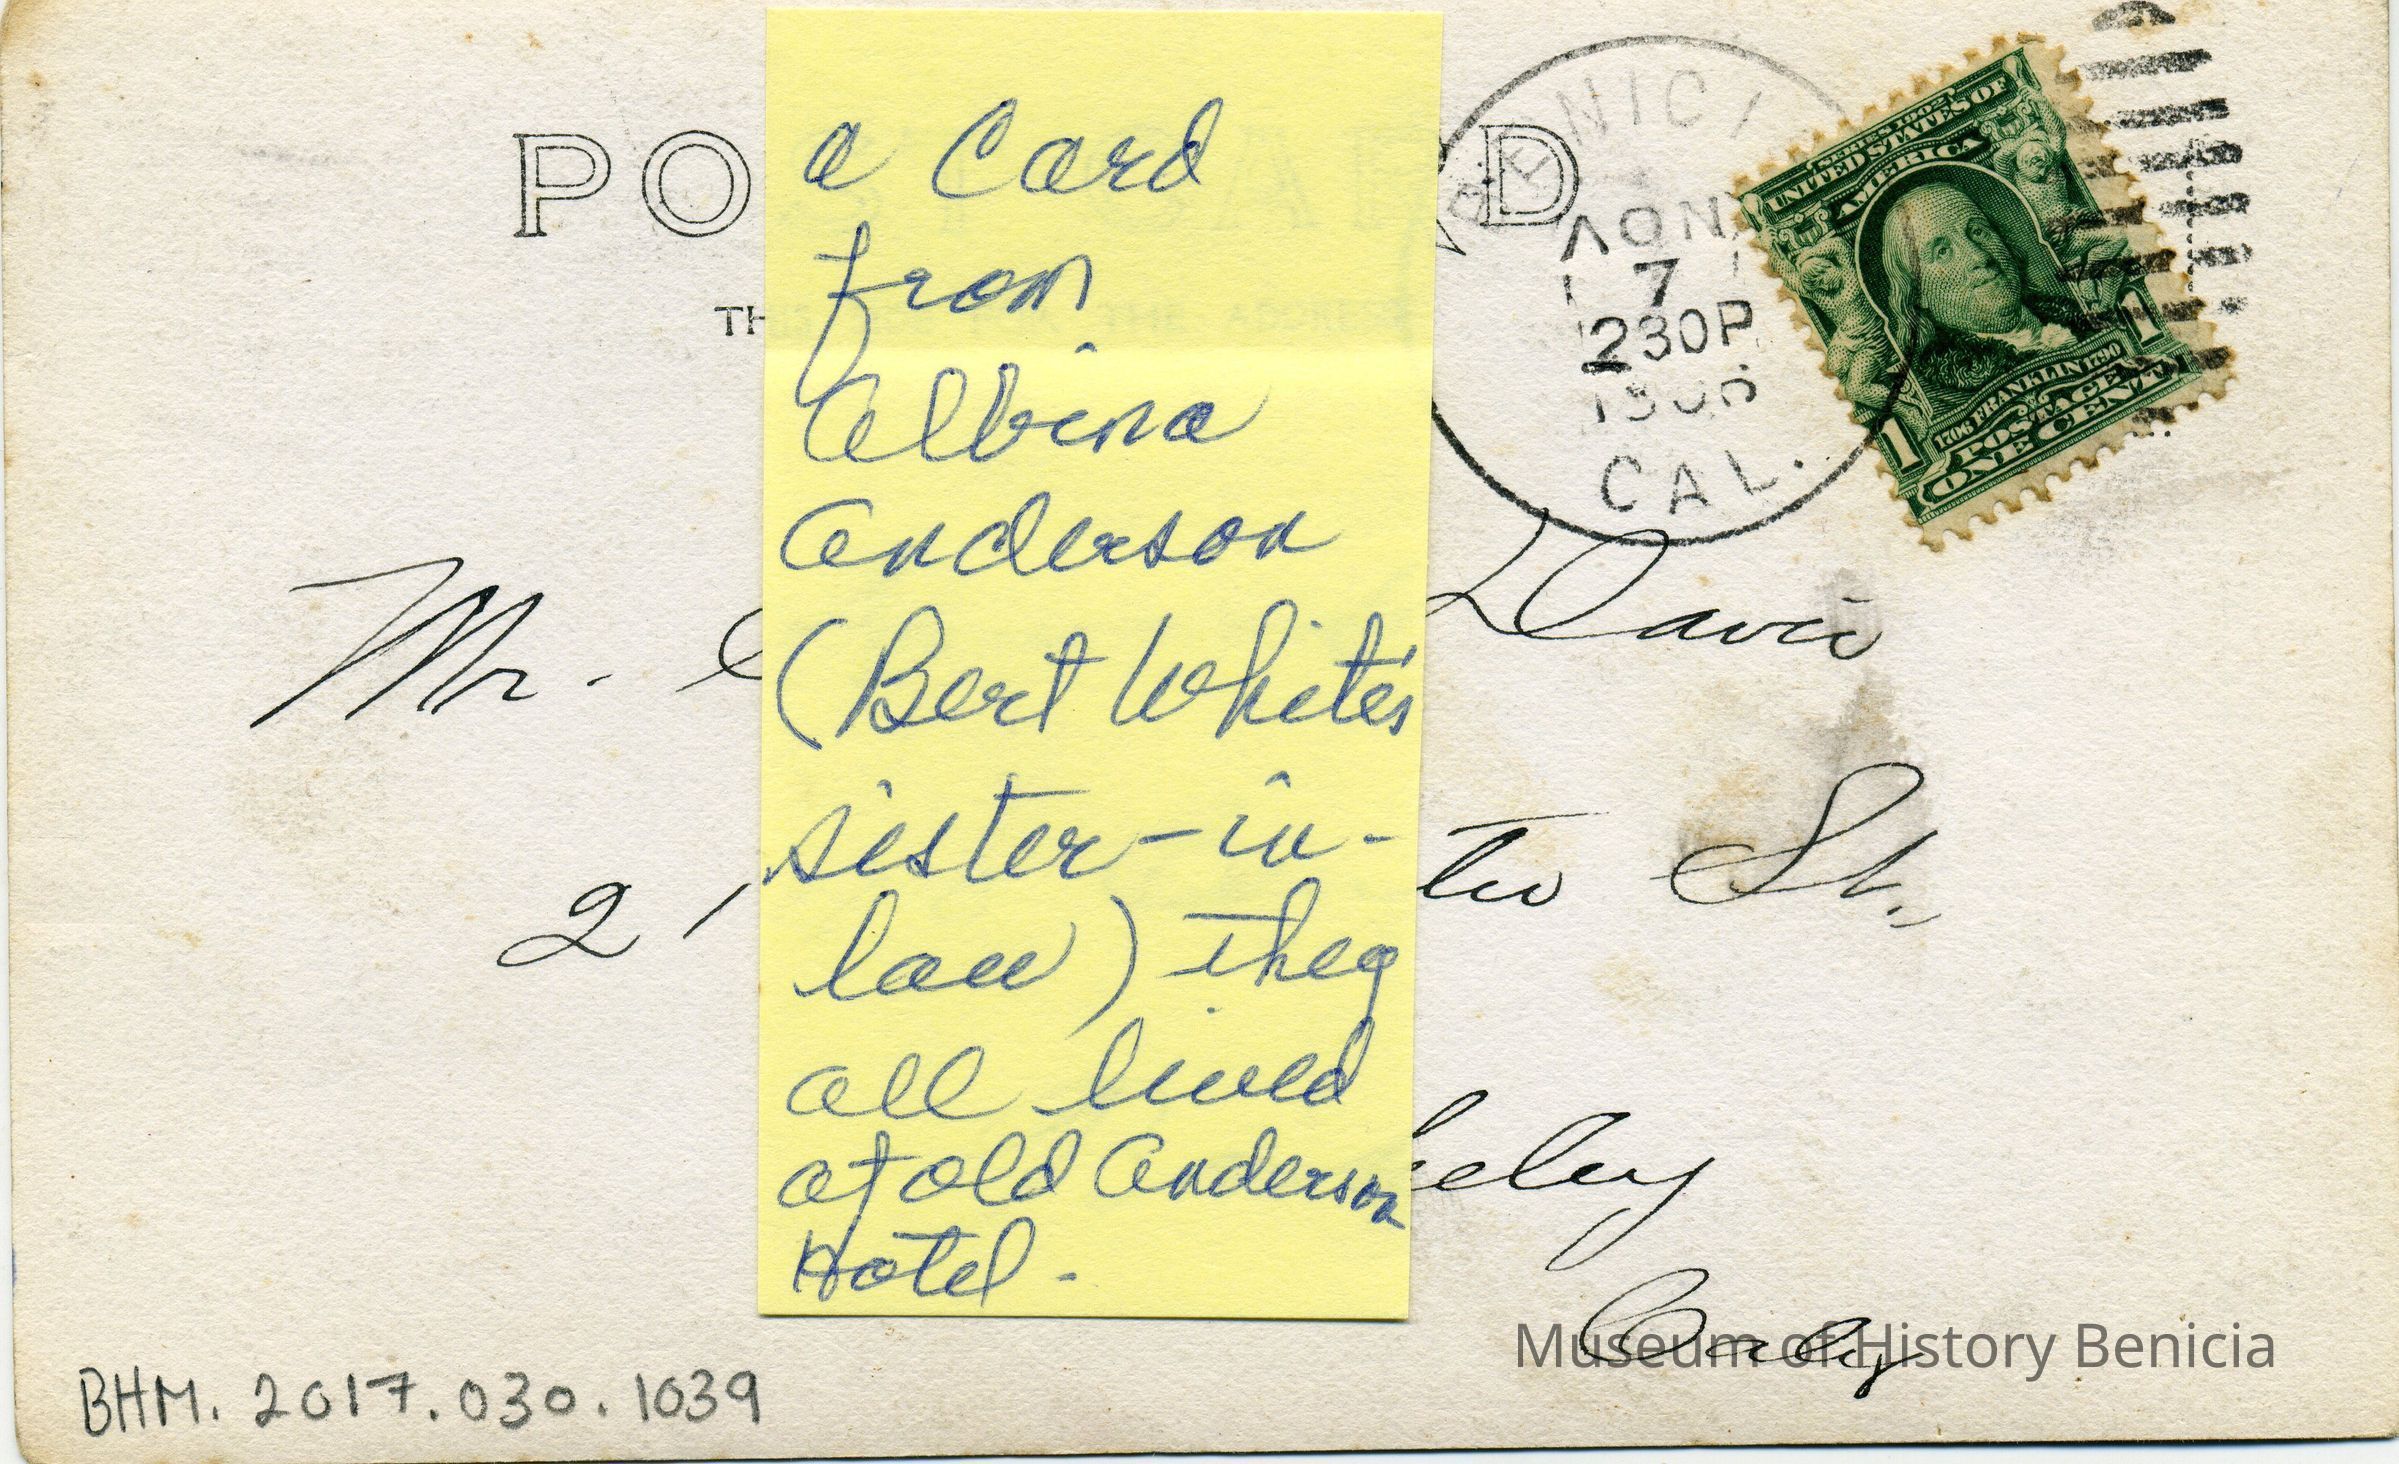 PO
D
TH
BENICI
NOV
7
230P
CAL.
SERIES 1902
UNITED STATES OF
AMERICA
1706 FRANKLIN 1790
POSTAGE
1 ONE CENT 1
a Card
from
Albina
Anderson
(Bert White's
sister-in-
law) they
all lived
at old Anderson
Hotel.
Mr. Davis
2 1 St.,
eley
Museum of History Benicia
BHM. 2017.030.1039